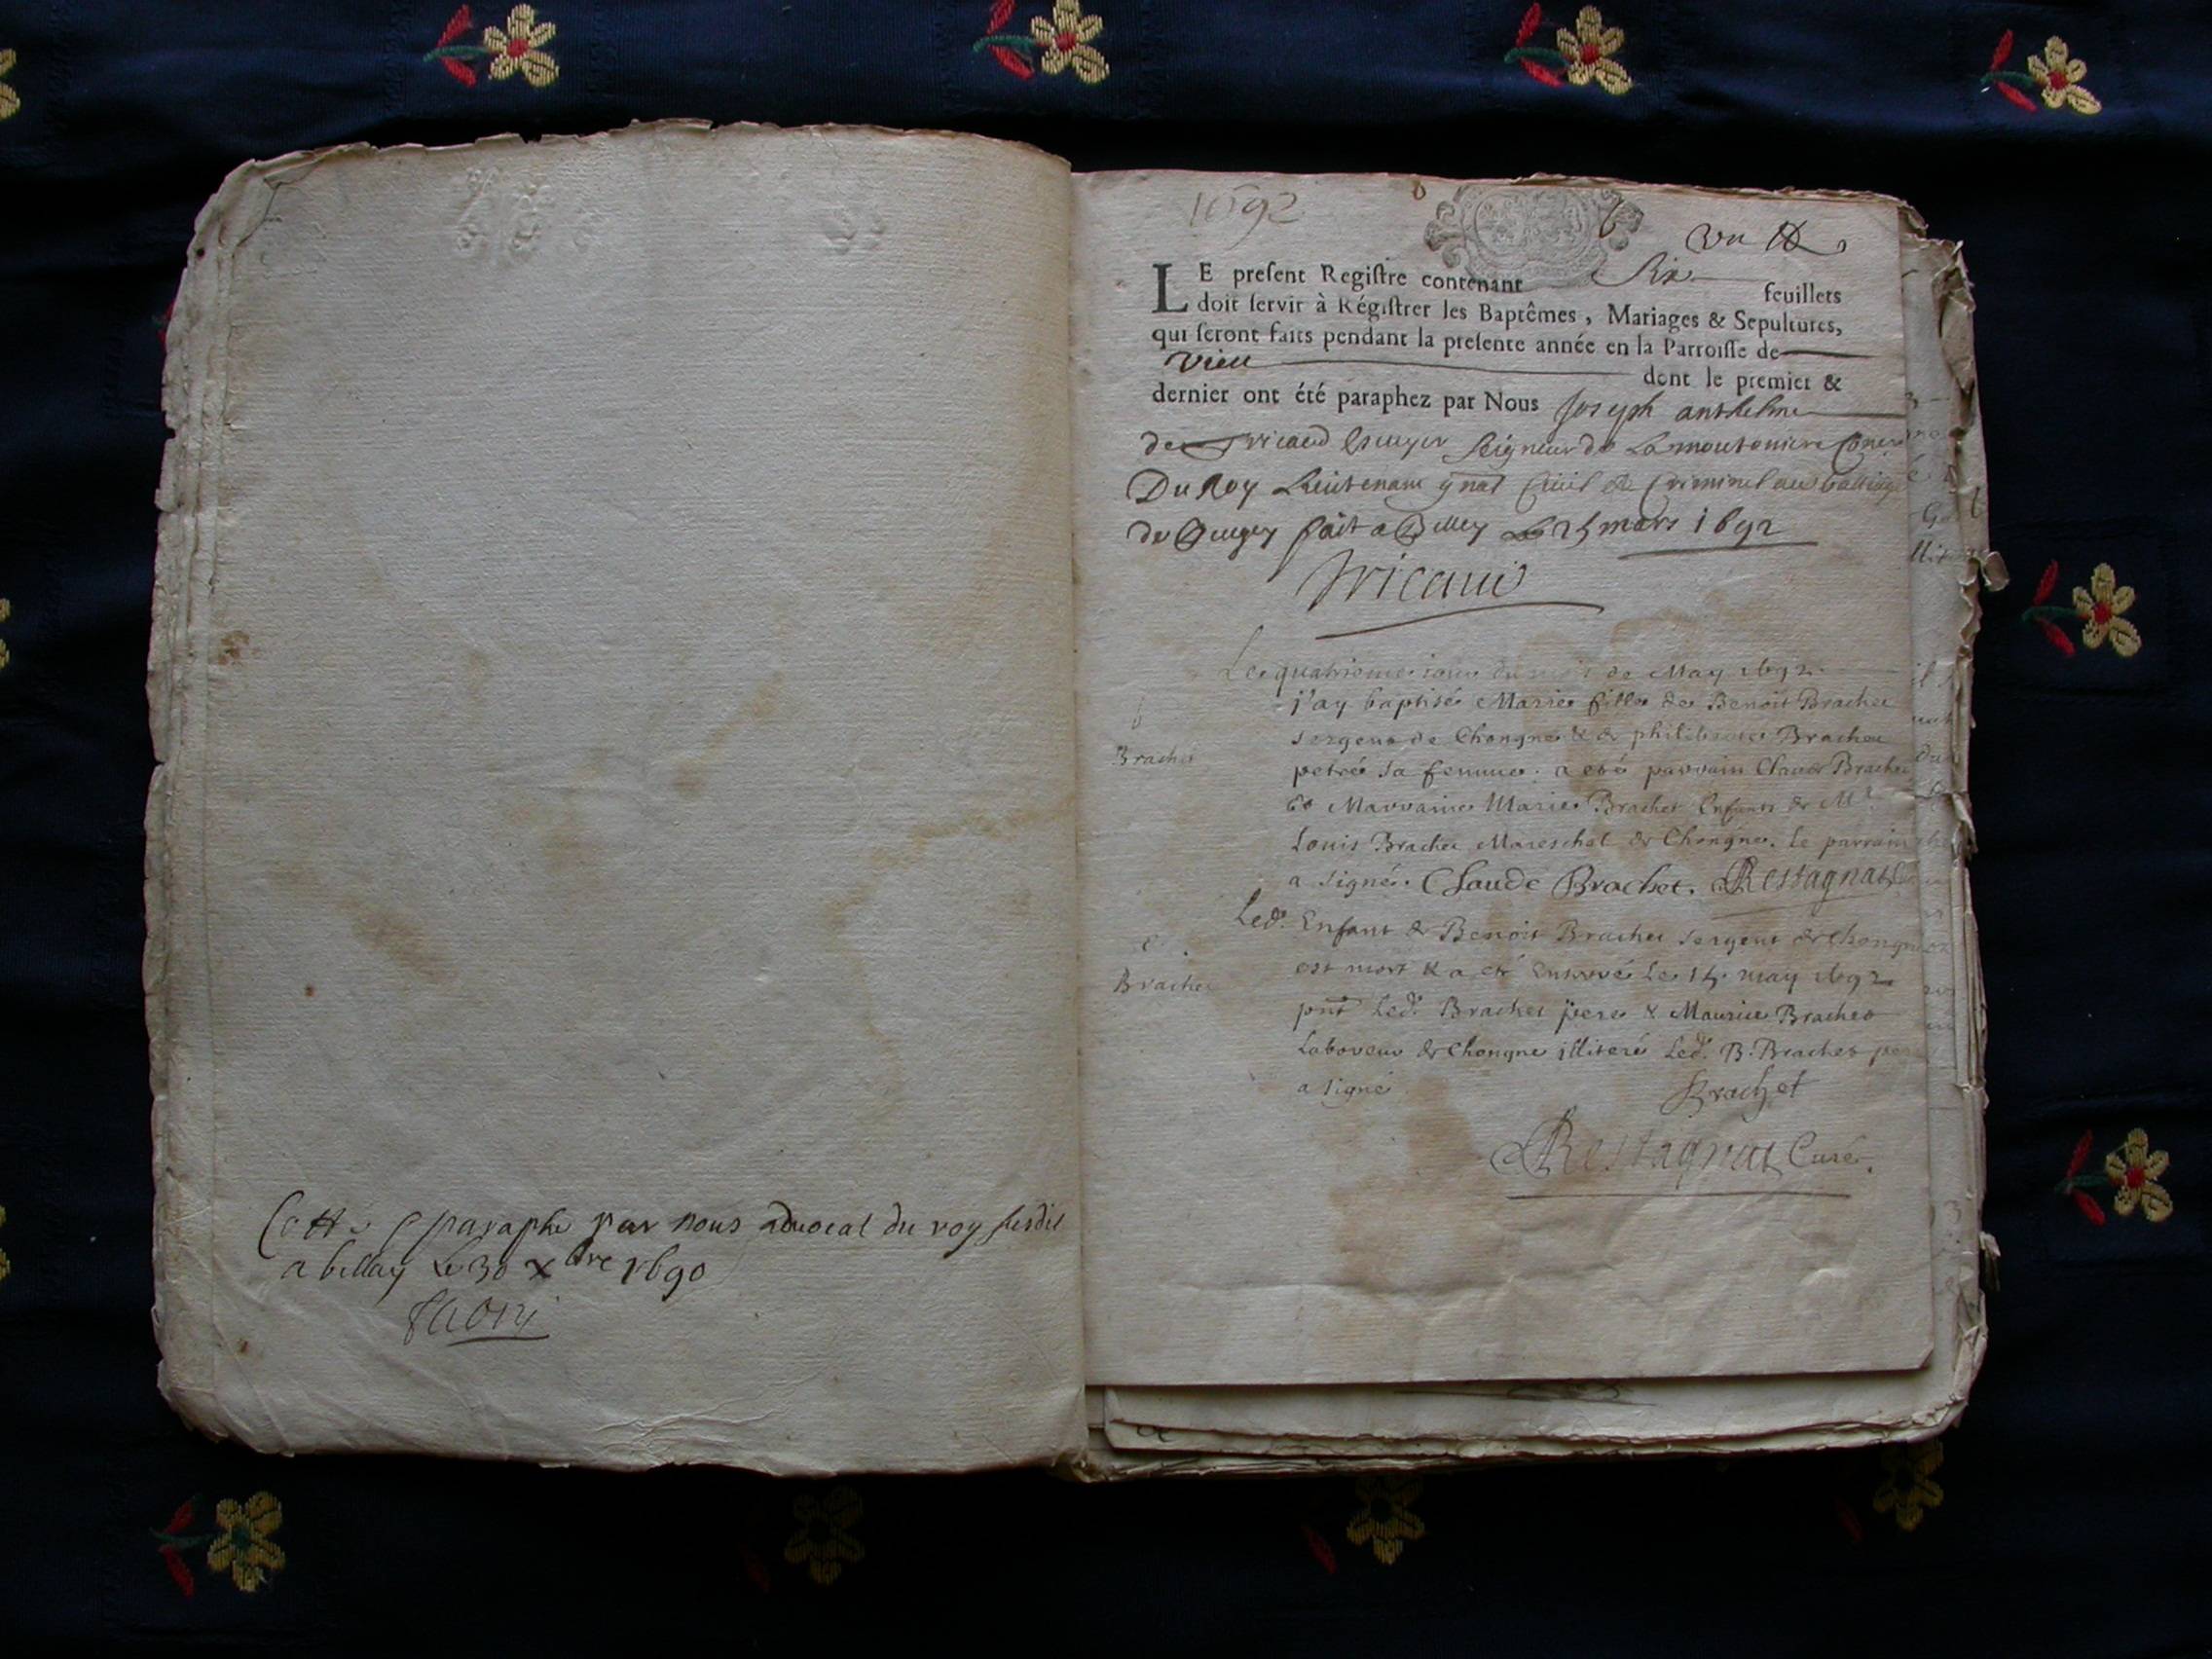 Cotté & paraphé par nous advocat du roy susdit
a bellay le 30 xbre 1690
1692
un
LE preſent Regiſtre contenant Six feuillets
doit ſervir à Régiſtrer les Baptêmes, Mariages & Sepultures,
qui ſeront faits pendant la preſente année en la Parroiſſe de
Vieu dont le premier &
dernier ont été paraphez par Nous Joseph anthelme
de Tricaud Escuyer Seigneur de Lamoutoniere Coner
Du Roy Lieutenant gnal Civil & Criminel au balliage
de Bugey fait a Belley le 25 mars 1692
Tricaud
Le quatrieme iour du mois de May 1692.
j'ay baptisé Marie fille de Benoit Brachet
sergent de Chongne & de philiberte Brachet
b
Brachet
petré sa femme. a eté parrain Claude Brachet
et Marraine Marie Brachet Enfans de Mr.
Louis Brachet Mareschal de Chongne. le parrain
a signé. Claude Brachet. Restagnat
Led. Enfant de Benoit Brachet sergent de Chongne
Brachet
est mort & a eté Enterré le 14. may 1692
pnt led. Brachet pere & Maurice Brachet
Laboureur de Chongne illiteré led. B. Brachet pere
a signé Brachet
Restagnat Curé.